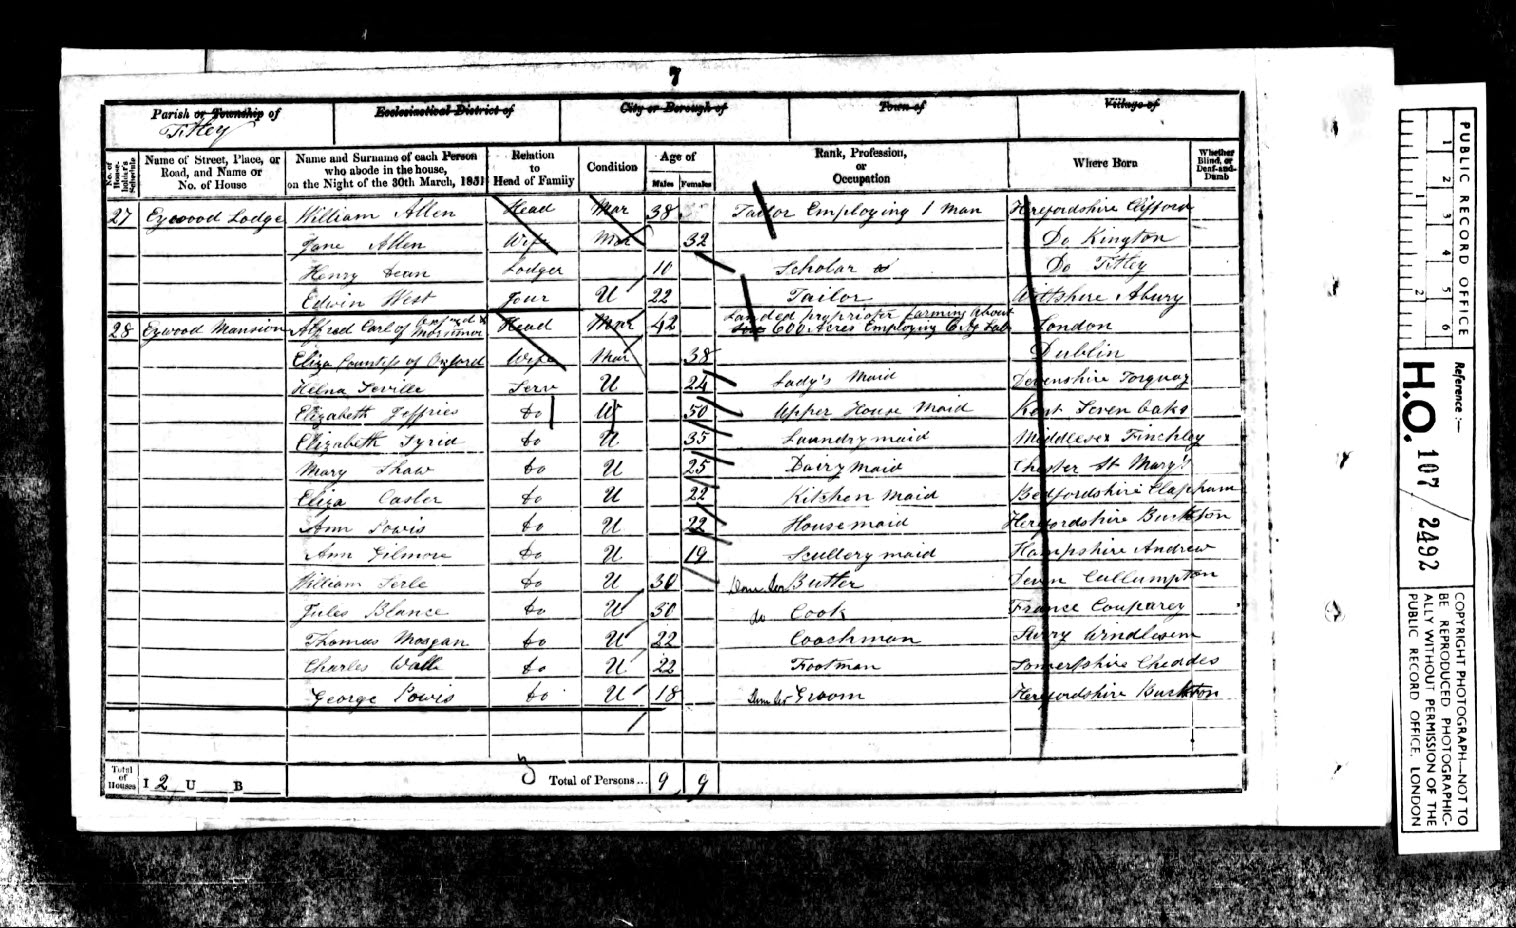 7
Parish or Township of
Titley
Ecclesiastical District of
City or Borough of
Town of
Village of
No. of House-holder's Schedule
Name of Street, Place, or Road, and Name or No. of House
Name and Surname of each Person who abode in the house, on the Night of the 30th March, 1851
Relation to Head of Family
Condition
Age of
Males Females
Rank, Profession, or Occupation
Where Born
Whether Blind, or Deaf-and-Dumb
27 Eywood Lodge William Allen Head Mar 38 Tailor Employing 1 Man Herefordshire Clifford
Jane Allen Wife Mar 32 Do Kington
Henry Dean Lodger 10 Scholar Do Titley
Edwin West Jour U 22 Tailor Wiltshire Abury
28 Eywood Mansion Alfred Earl of Oxford & Mortimer Head Mar 42 Landed proprietor farming About 600 Acres Employing Lab London
Eliza Countess of Oxford Wife Mar 38 Dublin
Helena Seville Serv U 24 Lady's Maid Devonshire Torquay
Elizabeth Jeffries do 50 Upper House Maid Kent Seven Oaks
Elizabeth do U 35 Laundry maid Middlesex Finchley
Mary Shaw do U 25 Dairy Maid Chester St Mary's
Eliza do U 22 Kitchen Maid Bedfordshire Clapham
Ann Powis do U 22 House maid Herefordshire
Ann Gilmore do U 19 Scullery maid Hampshire Andrew
William do U 30 Butler Devon Cullumpton
Jules Blance do U 50 do Cook France
Thomas Morgan do U 22 Coachman Surry Windlesem
Charles Wall do U 22 Footman Somersshire
George Powis do U 18 Groom Herefordshire
Total of Houses I 2 U B Total of Persons... 9 9
PUBLIC RECORD OFFICE
1 2 3 4 5 6
1 2
Reference :-
H.O. 107/2492
COPYRIGHT PHOTOGRAPH—NOT TO
BE REPRODUCED PHOTOGRAPHIC-
ALLY WITHOUT PERMISSION OF THE
PUBLIC RECORD OFFICE, LONDON